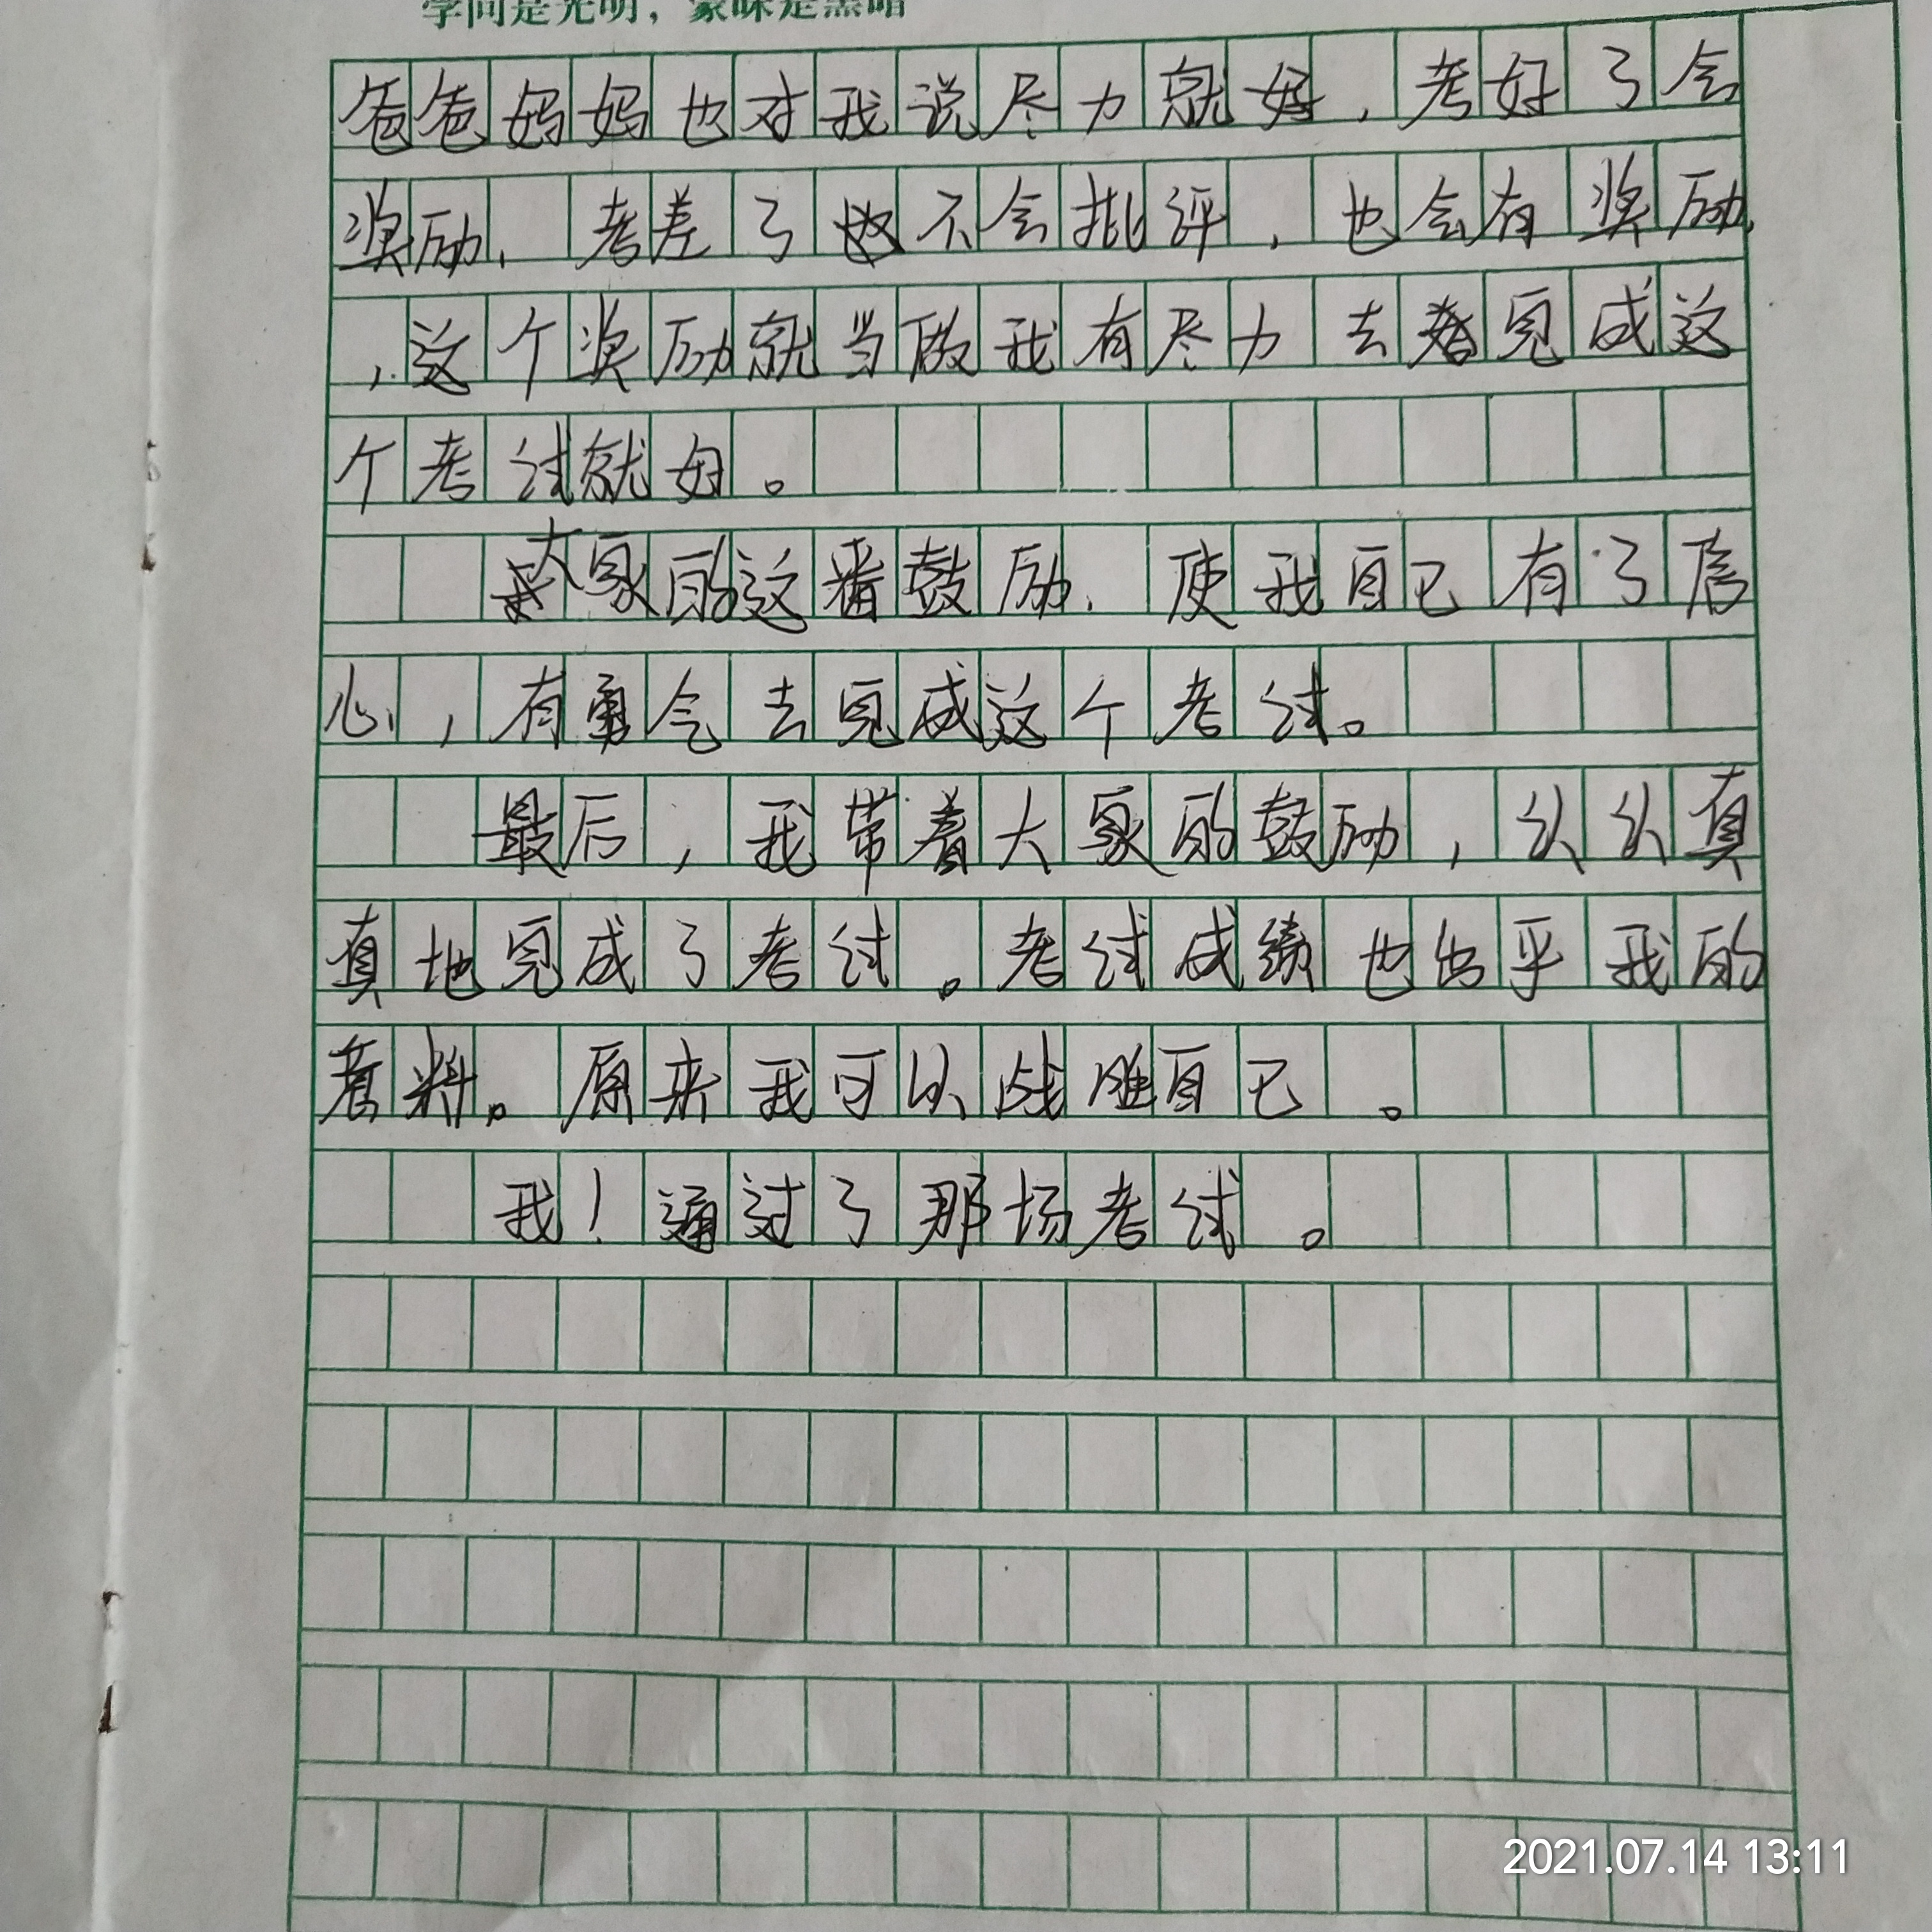 学问是光明，蒙昧是黑暗
爸爸妈妈也对我说尽力就好，考好了会
奖励，考差了也不会批评，也会有奖励
，这个奖励就当做我有尽力去完成这
个考试就好。
大家的这番鼓励，使我自己有了信
心，有勇气去完成这个考试。
最后，我带着大家的鼓励，认认真
真地完成了考试。考试成绩也出乎我的
意料。原来我可以战胜自己。
我！通过了那场考试。
2021.07.14 13:11